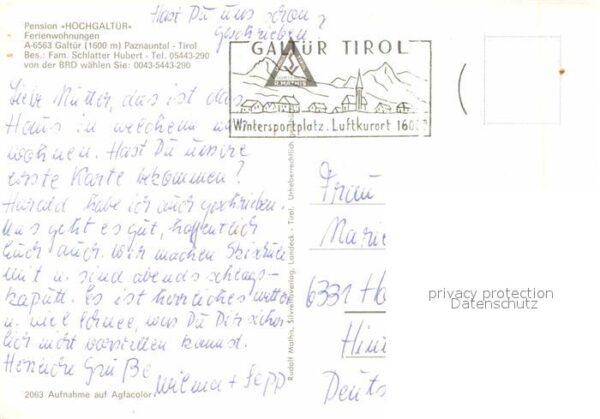 Hast Du uns schon
geschrieben?
Pension »HOCHGALTÜR«
Ferienwohnungen
A-6563 Galtür (1600 m) Paznauntal - Tirol
Bes.: Fam. Schlatter Hubert - Tel. 05443-290
von der BRD wählen Sie: 0043-5443-290
GALTÜR TIROL
Wintersportplatz. Luftkurort 1600
Liebe Mutter, das ist das
Haus in welchem wir
wohnen. Hast Du unsere
erste Karte bekommen?
Harald habe ich auch geschrieben.
Uns geht es gut, hoffentlich
Euch auch. Wir machen Skischule
mit u. sind abends schlags-
kaputt. Es ist herrliches Wetter
u. viel Schnee, was Du Dir sicher-
lich nicht vorstellen kannst.
Herzliche Grüße
Wilma + Sepp
2063 Aufnahme auf Agfacolor
Rudolf Mathis, Silvrettaverlag, Landeck - Tirol. Urheberrechtlich
Frau
Marie
6331 Ho
Hin
Deuts
privacy protection
Datenschutz